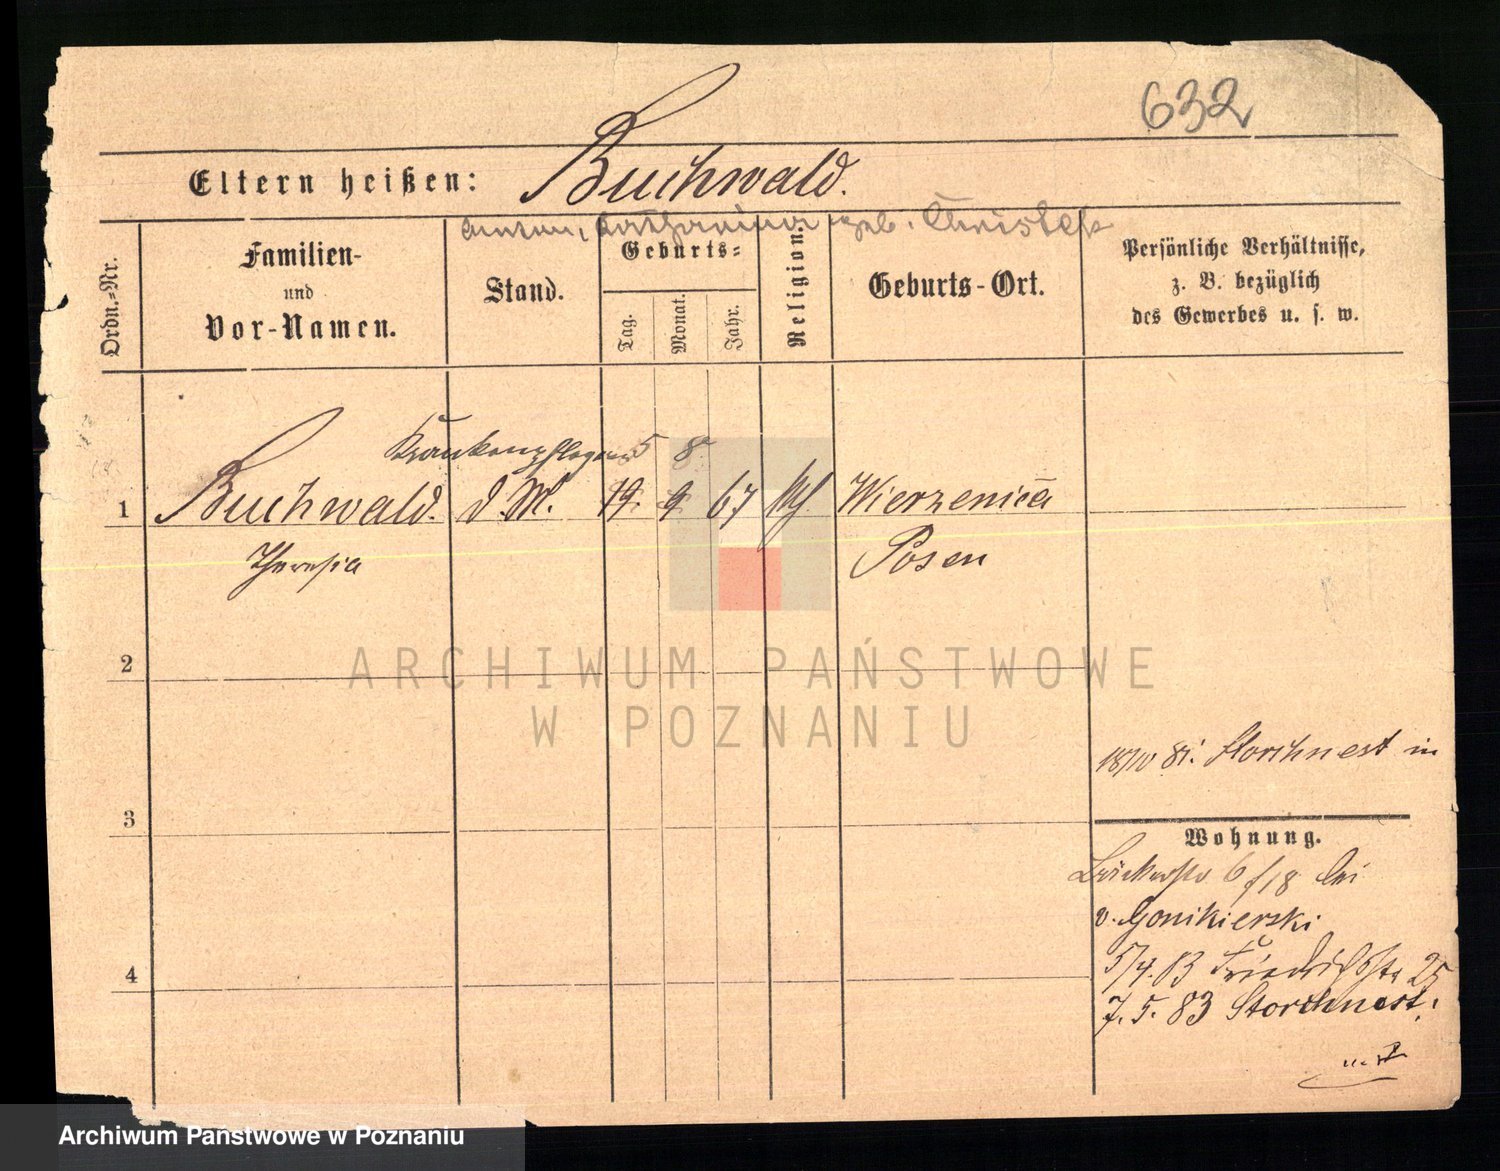 632
Eltern heißen: Buchwald.
Anton, Katharina geb.
Ordn.=Nr.
Familien-
und
Vor-Namen.
Stand.
Geburts=
Tag.
Monat.
Jahr.
Religion.
Geburts-Ort.
Persönliche Verhältnisse,
z. B. bezüglich
des Gewerbes u. s. w.
Krankenpflegerin 5 8
1 Buchwald. d. M. 19. 9. 67 kth. Wierzenica
Theresia Posen
2
ARCHIWUM PAŃSTWOWE
W POZNANIU
18/10 81. Storchnest in
3
Wohnung.
6 f/18 bei
v. Gonikierski
5/4. 83 Friedrichstr 25
4
7. 5. 83 Storchnest.
Archiwum Państwowe w Poznaniu